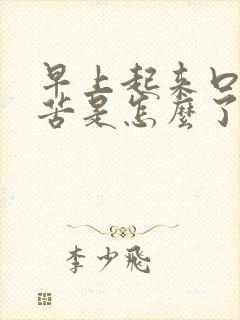 早上起来口
苦是怎麼了
李少飛